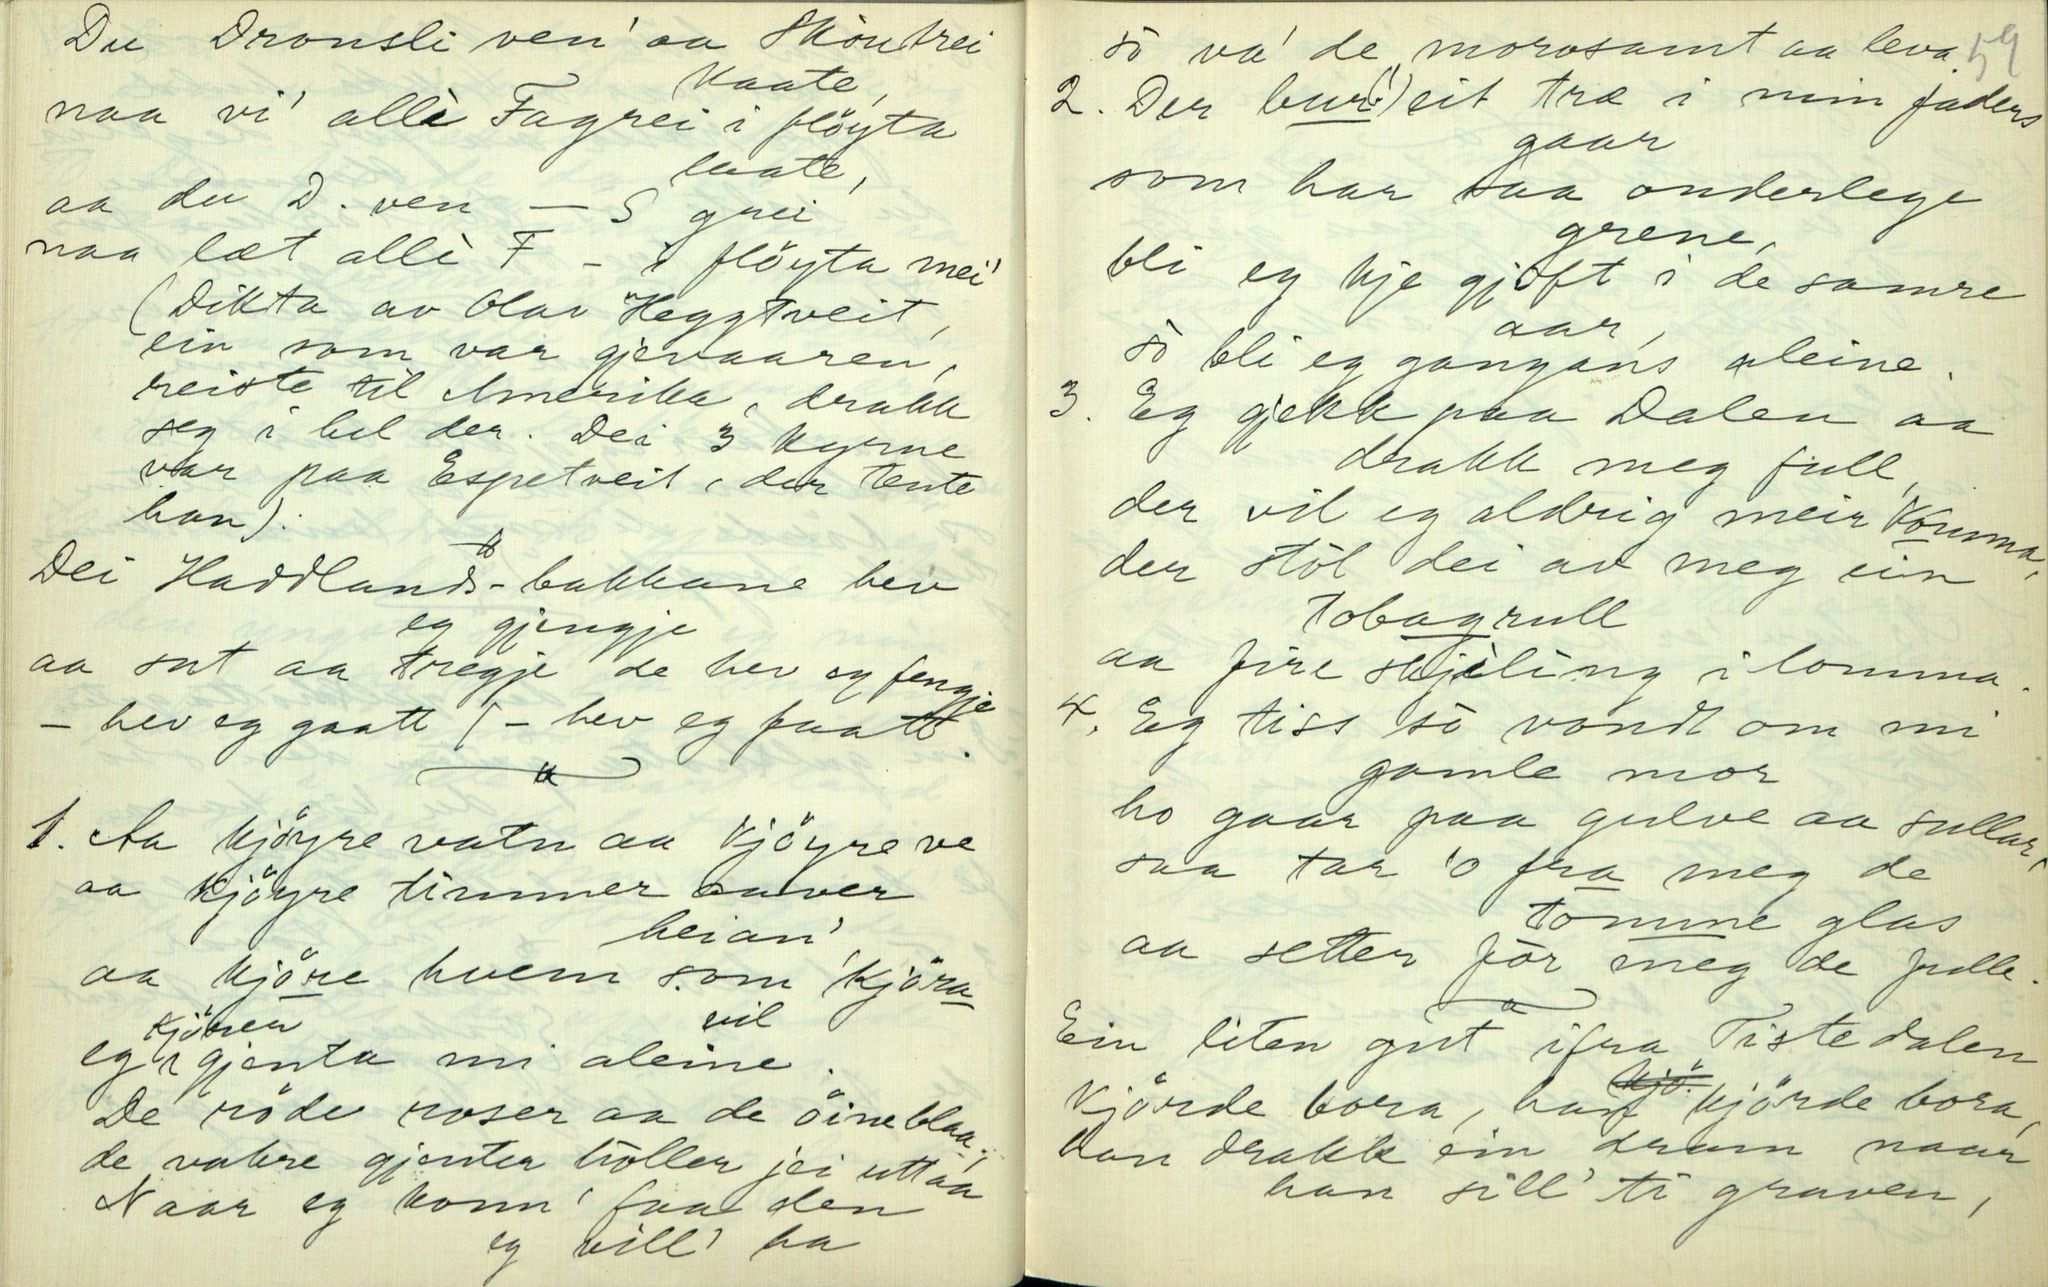 Du Dronsli ven' aa Skōntrei
kaate,
naa vi' allè Fagrei i flöyta
laate,
aa du D. ven — S grei
naa læt allè F - i flöyta mei'
(Dikta av Olav Heggtveit,
ein som var gjevaaren,
reiste til Amerika, drakk
seg i hel der. Dei 3 kyrne
var paa Espetveit, der tente
han).
Dei Haddlands-bakkane hev
eg gjengje
aa sut aa tregje de hev eg fengje
- hev eg gaatt / - hev eg faatt.
1. Aa kjöyre vatn aa kjöyre ve
aa kjöyre timmer aaver
heian'
aa kjöre hvem som kjöra
vil
eg kjörer gjenta mi aleine.
De röde roser aa de öine blaa,
de vakre gjenter höller jei uttaa
Naar eg konn' faa den
eg vill' ha
59
sò va' de morosamt aa leva.
2. Der bur(!) eit træ i min faders
gaar
som har saa onderlege
grene,
bli eg kje gjift i de samre
aar,
sò bli eg gangans aleine.
3. Eg gjekk paa Dalen aa
drakk meg full,
der vil eg aldrig meir komma,
der stòl dei av meg ein
tobagrull
aa fire skjeling i lomma.
4. Eg tiss sò vondt om mi
gamle mor
ho gaar paa gulve aa sullar,
saa tar 'o fra meg de
tomme glas
aa setter för meg de fulle.
Ein liten gut ifra Tistedalen
kjörde bora, han kjörde bora,
han drakk ein dram naar
han sill' ti graven,